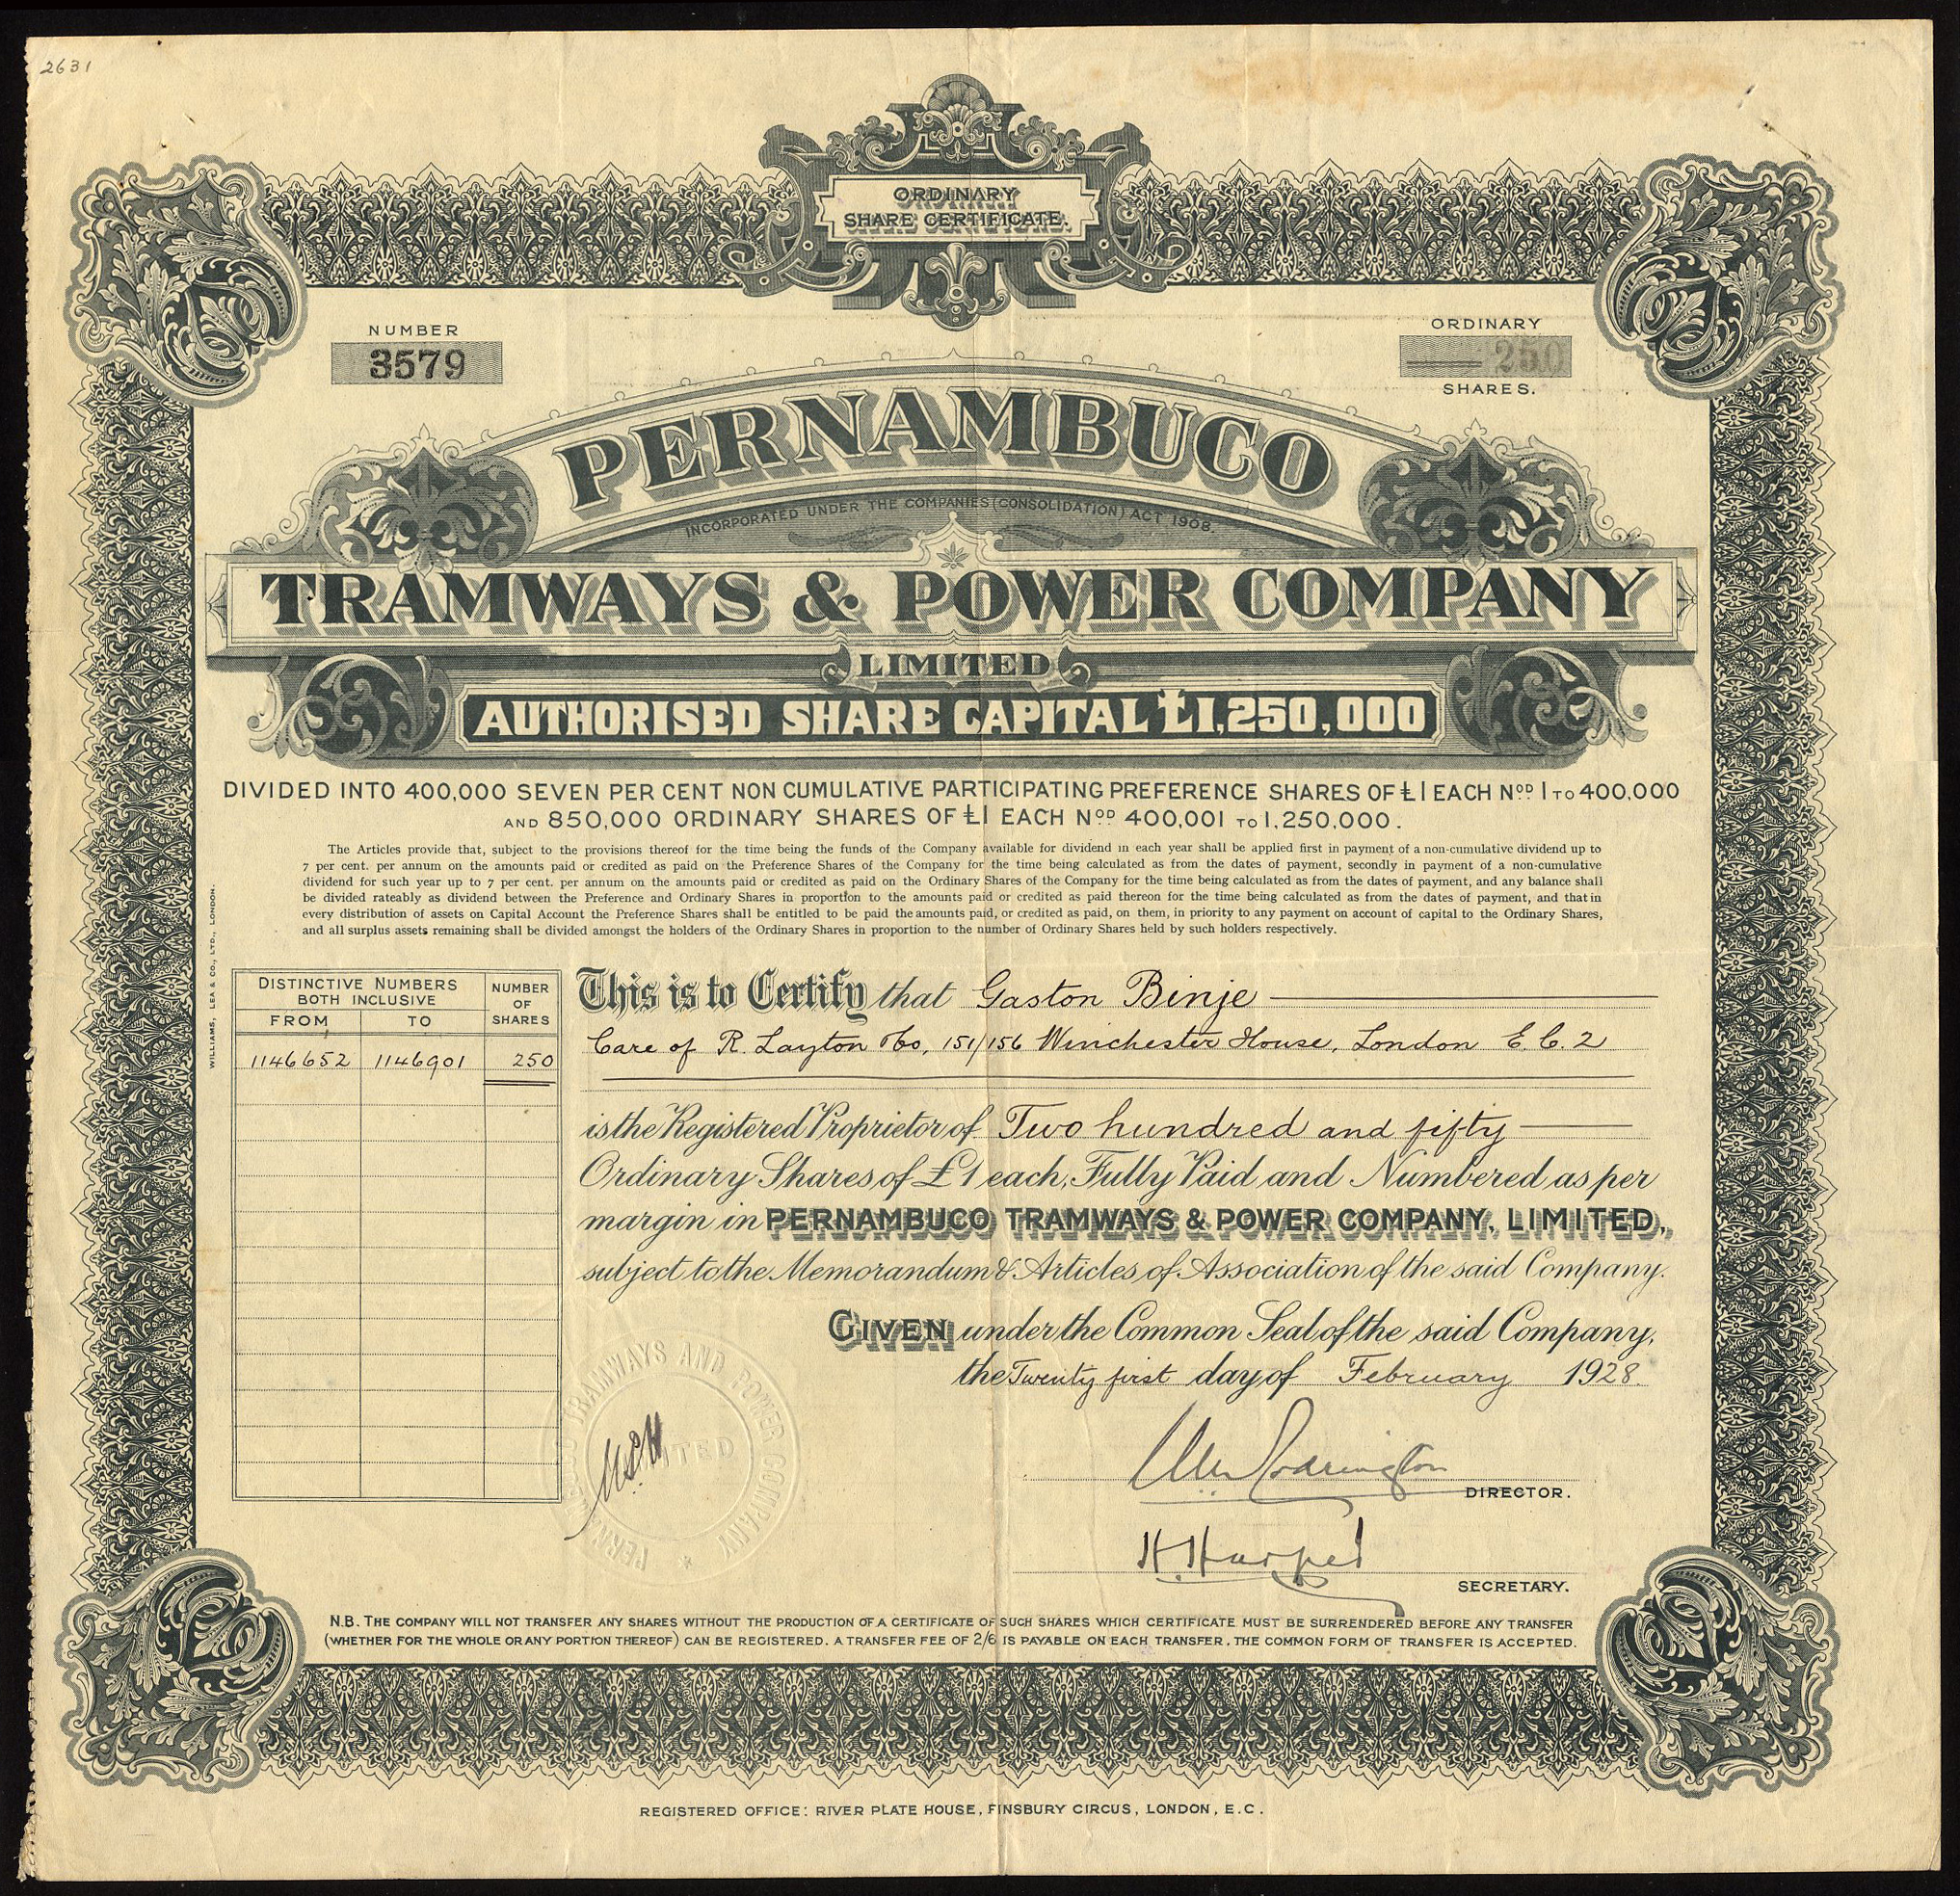 2631
ORDINARY
SHARE CERTIFICATE.
NUMBER
3579
ORDINARY
250
SHARES.
PERNAMBUCO
INCORPORATED UNDER THE COMPANIES (CONSOLIDATION) ACT 1908.
TRAMWAYS & POWER COMPANY
LIMITED
AUTHORISED SHARE CAPITAL £1,250,000
DIVIDED INTO 400,000 SEVEN PER CENT NON CUMULATIVE PARTICIPATING PREFERENCE SHARES OF £1 EACH NOD 1 TO 400,000
AND 850,000 ORDINARY SHARES OF £1 EACH NOD 400,001 TO 1,250,000.
The Articles provide that, subject to the provisions thereof for the time being the funds of the Company available for dividend in each year shall be applied first in payment of a non-cumulative dividend up to
7 per cent. per annum on the amounts paid or credited as paid on the Preference Shares of the Company for the time being calculated as from the dates of payment, secondly in payment of a non-cumulative
dividend for such year up to 7 per cent. per annum on the amounts paid or credited as paid on the Ordinary Shares of the Company for the time being calculated as from the dates of payment, and any balance shall
be divided rateably as dividend between the Preference and Ordinary Shares in proportion to the amounts paid or credited as paid thereon for the time being calculated as from the dates of payment, and that in
every distribution of assets on Capital Account the Preference Shares shall be entitled to be paid the amounts paid, or credited as paid, on them, in priority to any payment on account of capital to the Ordinary Shares,
and all surplus assets remaining shall be divided amongst the holders of the Ordinary Shares in proportion to the number of Ordinary Shares held by such holders respectively.
WILLIAMS, LEA & CO., LTD., LONDON.
DISTINCTIVE NUMBERS
BOTH INCLUSIVE
FROM TO
NUMBER
OF
SHARES
1146652 1146901 250
This is to Certify that Gaston Binje
Care of R. Layton & Co, 151/156 Winchester House, London E.C.2
is the Registered Proprietor of Two hundred and fifty
Ordinary Shares of £1 each, Fully Paid and Numbered as per
margin in PERNAMBUCO TRAMWAYS & POWER COMPANY, LIMITED,
subject to the Memorandum & Articles of Association of the said Company.
GIVEN under the Common Seal of the said Company,
the Twenty first day of February 1928.
PERNAMBUCO TRAMWAYS AND POWER COMPANY
LIMITED
DIRECTOR.
H. Harper
SECRETARY.
N.B. THE COMPANY WILL NOT TRANSFER ANY SHARES WITHOUT THE PRODUCTION OF A CERTIFICATE OF SUCH SHARES WHICH CERTIFICATE MUST BE SURRENDERED BEFORE ANY TRANSFER
(WHETHER FOR THE WHOLE OR ANY PORTION THEREOF) CAN BE REGISTERED. A TRANSFER FEE OF 2/6 IS PAYABLE ON EACH TRANSFER. THE COMMON FORM OF TRANSFER IS ACCEPTED.
REGISTERED OFFICE: RIVER PLATE HOUSE, FINSBURY CIRCUS, LONDON, E.C.